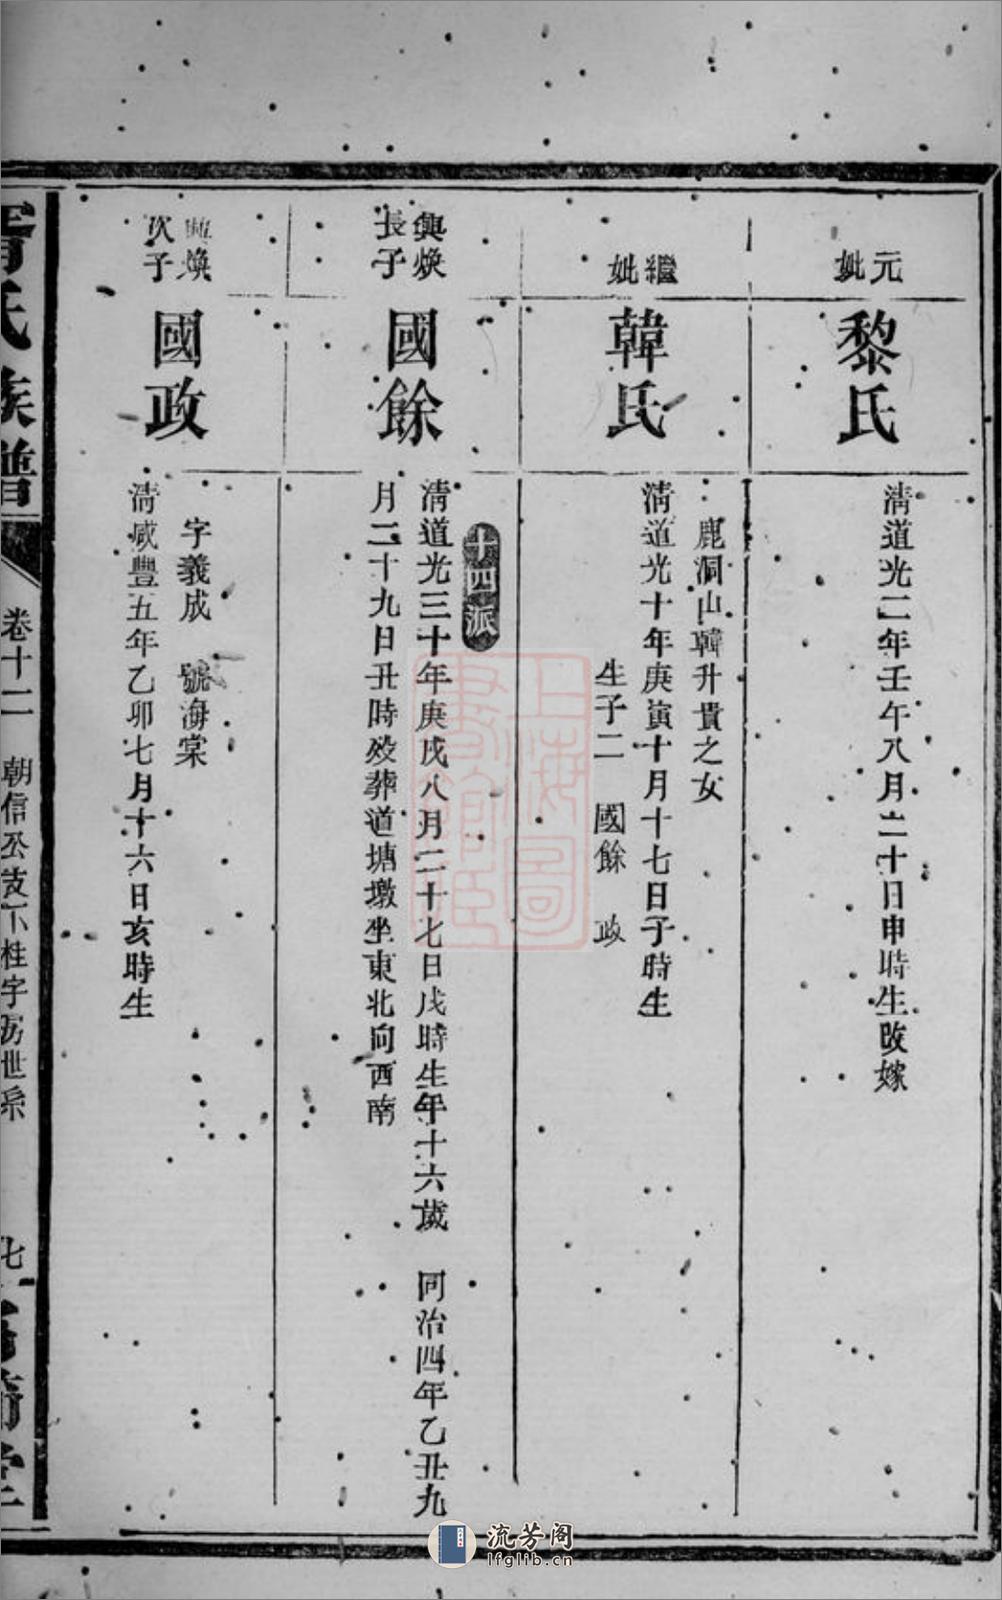 元妣
黎氏
清道光二年壬午八月二十日申時生改嫁
繼妣
韓氏
鹿洞山韓升貴之女
清道光十年庚寅十月十七日子時生
生子二　國餘　政
興煥
長子
國餘
廿四派
清道光三十年庚戌八月二十七日戌時生年十六歲　同治四年乙丑九
月二十九日丑時歿葬道塘墩坐東北向西南
興煥
次子
國政
字義成　號海棠
清咸豐五年乙卯七月十六日亥時生
氏族譜
卷十二　朝信公支下桂字房世系
七
堂
上海圖書館藏
流芳阁
lfglib.cn